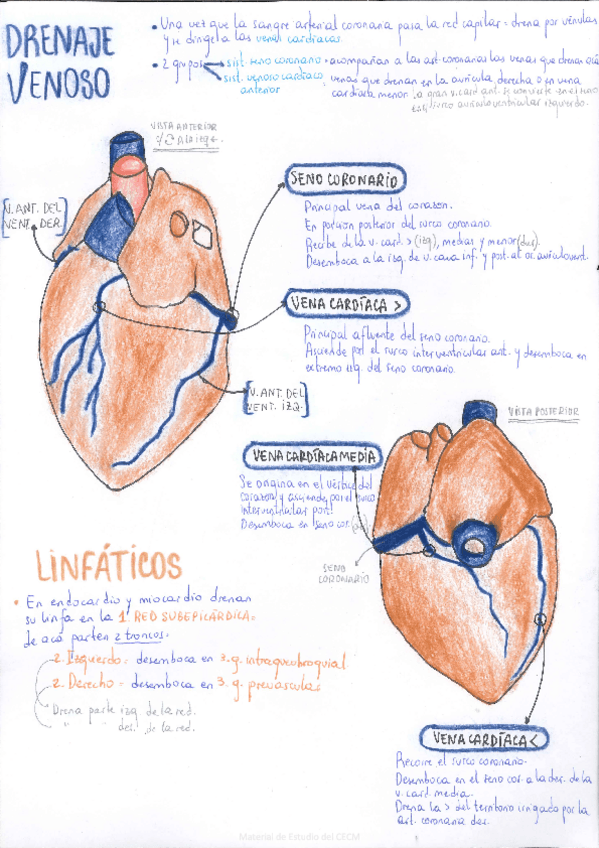 DRENAJE
VENOSO
• Una vez que la sangre arterial coronaria pasa la red capilar = drena por vénulas
y se dirige a las venas cardíacas.
• 2 grupos
sist. seno coronario • acompañan a las art. coronarias las venas que drenan
sist. venoso cardíaco anterior
venas que drenan en la aurícula derecha o en vena
cardíaca menor. la gran v. card ant. se convierte en el seno
surco auriculoventricular izquierdo.
VISTA ANTERIOR
[V. ANT. DEL
VENT. DER.]
SENO CORONARIO
Principal vena del corazón.
En porción posterior del surco coronario.
Recibe de la v. card. > (izq), medias y menor (der).
Desemboca a la izq. de v. cava inf. y post. al or. auriculovent.
VENA CARDÍACA >
Principal afluente del seno coronario.
Asciende por el surco interventricular ant. y desemboca en
extremo izq. del seno coronario.
[V. ANT. DEL
VENT. IZQ.]
VISTA POSTERIOR
VENA CARDÍACA MEDIA
Se origina en el vértice del
corazón y asciende por el surco
interventricular post.
Desemboca en seno cor.
SENO
CORONARIO
LINFÁTICOS
• En endocardio y miocardio drenan
su linfa en la 1. RED SUBEPICÁRDICA.
de acá parten 2 troncos.
2. Izquierdo = desemboca en 3. g. intraqueobroquial
2. Derecho = desemboca en 3. g. prevascular
Drena parte izq. de la red.
" " der. de la red.
VENA CARDÍACA <
Recorre el surco coronario.
Desemboca en el seno cor. a la der. de la
v. card. media.
Drena la > del territorio irrigado por la
art. coronaria der.
Material de Estudio del CECM